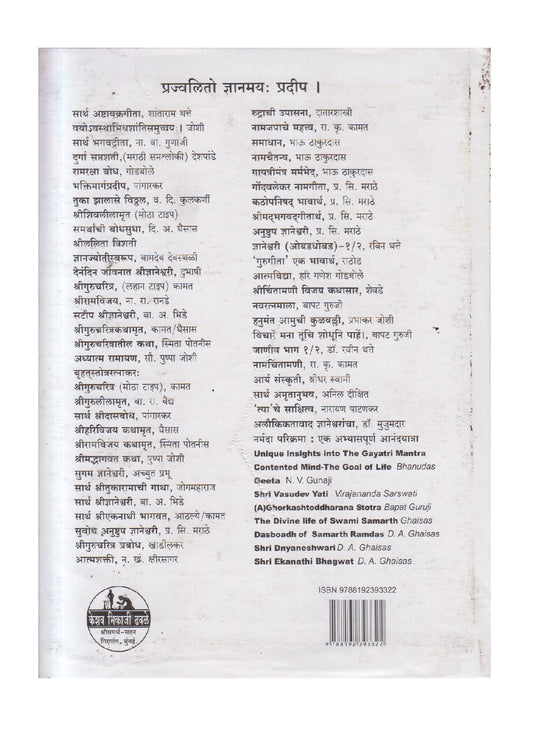 प्रज्वलितो ज्ञानमयः प्रदीप ।
सार्थ अष्टावक्रगीता, शांताराम थत्ते
वयोऽवस्थाभिधशांतिसमुच्चयः । जोशी
सार्थ भगवद्गीता, ना. बा. गुणाजी
दुर्गा सप्तशती,(मराठी समश्लोकी) देशपांडे
रामरक्षा बोध, गोडबोले
भक्तिमार्गप्रदीप, पांगारकर
तुका झालासे विठ्ठल, व. दि. कुलकर्णी
श्रीशिवलीलामृत (मोठा टाइप)
समर्थांची बोधसुधा, दि. अ. घैसास
श्रीललिता त्रिशती
ज्ञानज्योतीस्वरूप, वामदेव देवस्थळी
दैनंदिन जीवनात श्रीज्ञानेश्वरी, दुभाषी
श्रीगुरुचरित्र, (लहान टाइप) कामत
श्रीरामविजय, ना. रा. रानडे
सटीप श्रीज्ञानेश्वरी, बा. अ. भिडे
श्रीगुरुचरित्रकथामृत, कामत/घैसास
श्रीगुरुचरित्रातील कथा, स्मिता पोतनीस
अध्यात्म रामायण, सौ. पुष्पा जोशी
बृहत्स्तोत्ररत्नाकरः
श्रीगुरुचरित्र (मोठा टाइप), कामत
श्रीगुरुलीलामृत, बा. रा. वैद्य
सार्थ श्रीदासबोध, पांगारकर
श्रीहरिविजय कथामृत, घैसास
श्रीरामविजय कथामृत, स्मिता पोतनीस
श्रीमद्भागवत कथा, पुष्पा जोशी
सुगम ज्ञानेश्वरी, अच्युत प्रभू
सार्थ श्रीतुकारामाची गाथा, जोगमहाराज
सार्थ श्रीज्ञानेश्वरी, बा. अ. भिडे
सार्थ श्रीएकनाथी भागवत, आठल्ये/कामत
सुबोध अनुष्टुप ज्ञानेश्वरी, प्र. सि. मराठे
श्रीगुरुचरित्र प्रबोध, खाडीलकर
आत्मशक्ती, न. खं. क्षीरसागर
रुद्राची उपासना, दातारशास्त्री
नामजपाचे महत्त्व, रा. कृ. कामत
समाधान, भाऊ ठाकुरदास
नामचैतन्य, भाऊ ठाकुरदास
गायत्रीमंत्र मर्मभेद, भाऊ ठाकुरदास
गोंदवलेकर नामगीता, प्र. सि. मराठे
कठोपनिषद् भावार्थ, प्र. सि. मराठे
श्रीमद्भगवद्गीतार्थ, प्र. सि. मराठे
अनुष्टुप ज्ञानेश्वरी, प्र. सि. मराठे
ज्ञानेश्वरी (ओबडधोबड)-१/२, रविन थत्ते
'गुरुगीता' एक भावार्थ, राठोड
आत्मविद्या, हरि गणेश गोडबोले
श्रीचिंतामणी विजय कथासार, शेवडे
नवरत्नमाला, बापट गुरुजी
हनुमंत आमुची कुळवल्ली, प्रभाकर जोशी
विचारें मना तूंचि शोधूनि पाहें।, बापट गुरुजी
जाणीव भाग १/२, डॉ. रवीन थत्ते
नामचिंतामणी, रा. कृ. कामत
आर्य संस्कृती, श्रीधर स्वामी
सार्थ अमृतानुभव, अनिल दीक्षित
'त्या'चे साक्षित्व, नारायण पाटणकर
अलौकिकतावाद ज्ञानेश्वरांचा, डॉ. मुजुमदार
नर्मदा परिक्रमा : एक अभ्यासपूर्ण आनंदयात्रा
Unique Insights into The Gayatri Mantra
Contented Mind-The Goal of Life Bhanudas
Geeta N. V. Gunaji
Shri Vasudev Yati Virajananda Sarswati
(A)Ghorkashtoddharana Stotra Bapat Guruji
The Divine life of Swami Samarth Ghaisas
Dasboadh of Samarth Ramdas D. A. Ghaisas
Shri Dnyaneshwari D. A. Ghaisas
Shri Ekanathi Bhagwat D. A. Ghaisas
ISBN 9788192393322
9 788192 393322
केशव भिकाजी ढवळे
श्रीसमर्थ-सदन
गिरगांव, मुंबई